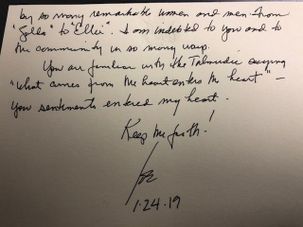 by so many remarkable women and men - from
"Golda" to "Ellie". I am indebted to you and to
the community in so many ways.
You are familiar with the Talmudic saying
"What comes from the heart enters the heart" –
your sentiments entered my heart.
Keep the faith!
1.24.19